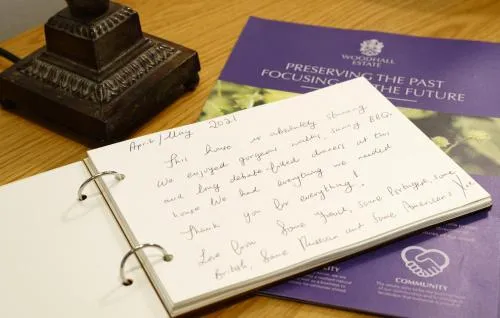 WOODHALL
ESTATE
PRESERVING THE PAST
FOCUSING THE FUTURE
April/May 2021
This house is absolutely stunning
We enjoyed gorgeous walks, sunny BBQ,
and long debate-filled dinners at this
house. We had everything we needed
Thank you for everything!
Love from Some French, some Portuguese, some
British, Some Russian and Some Americans
COMMUNITY
COMMUNITY